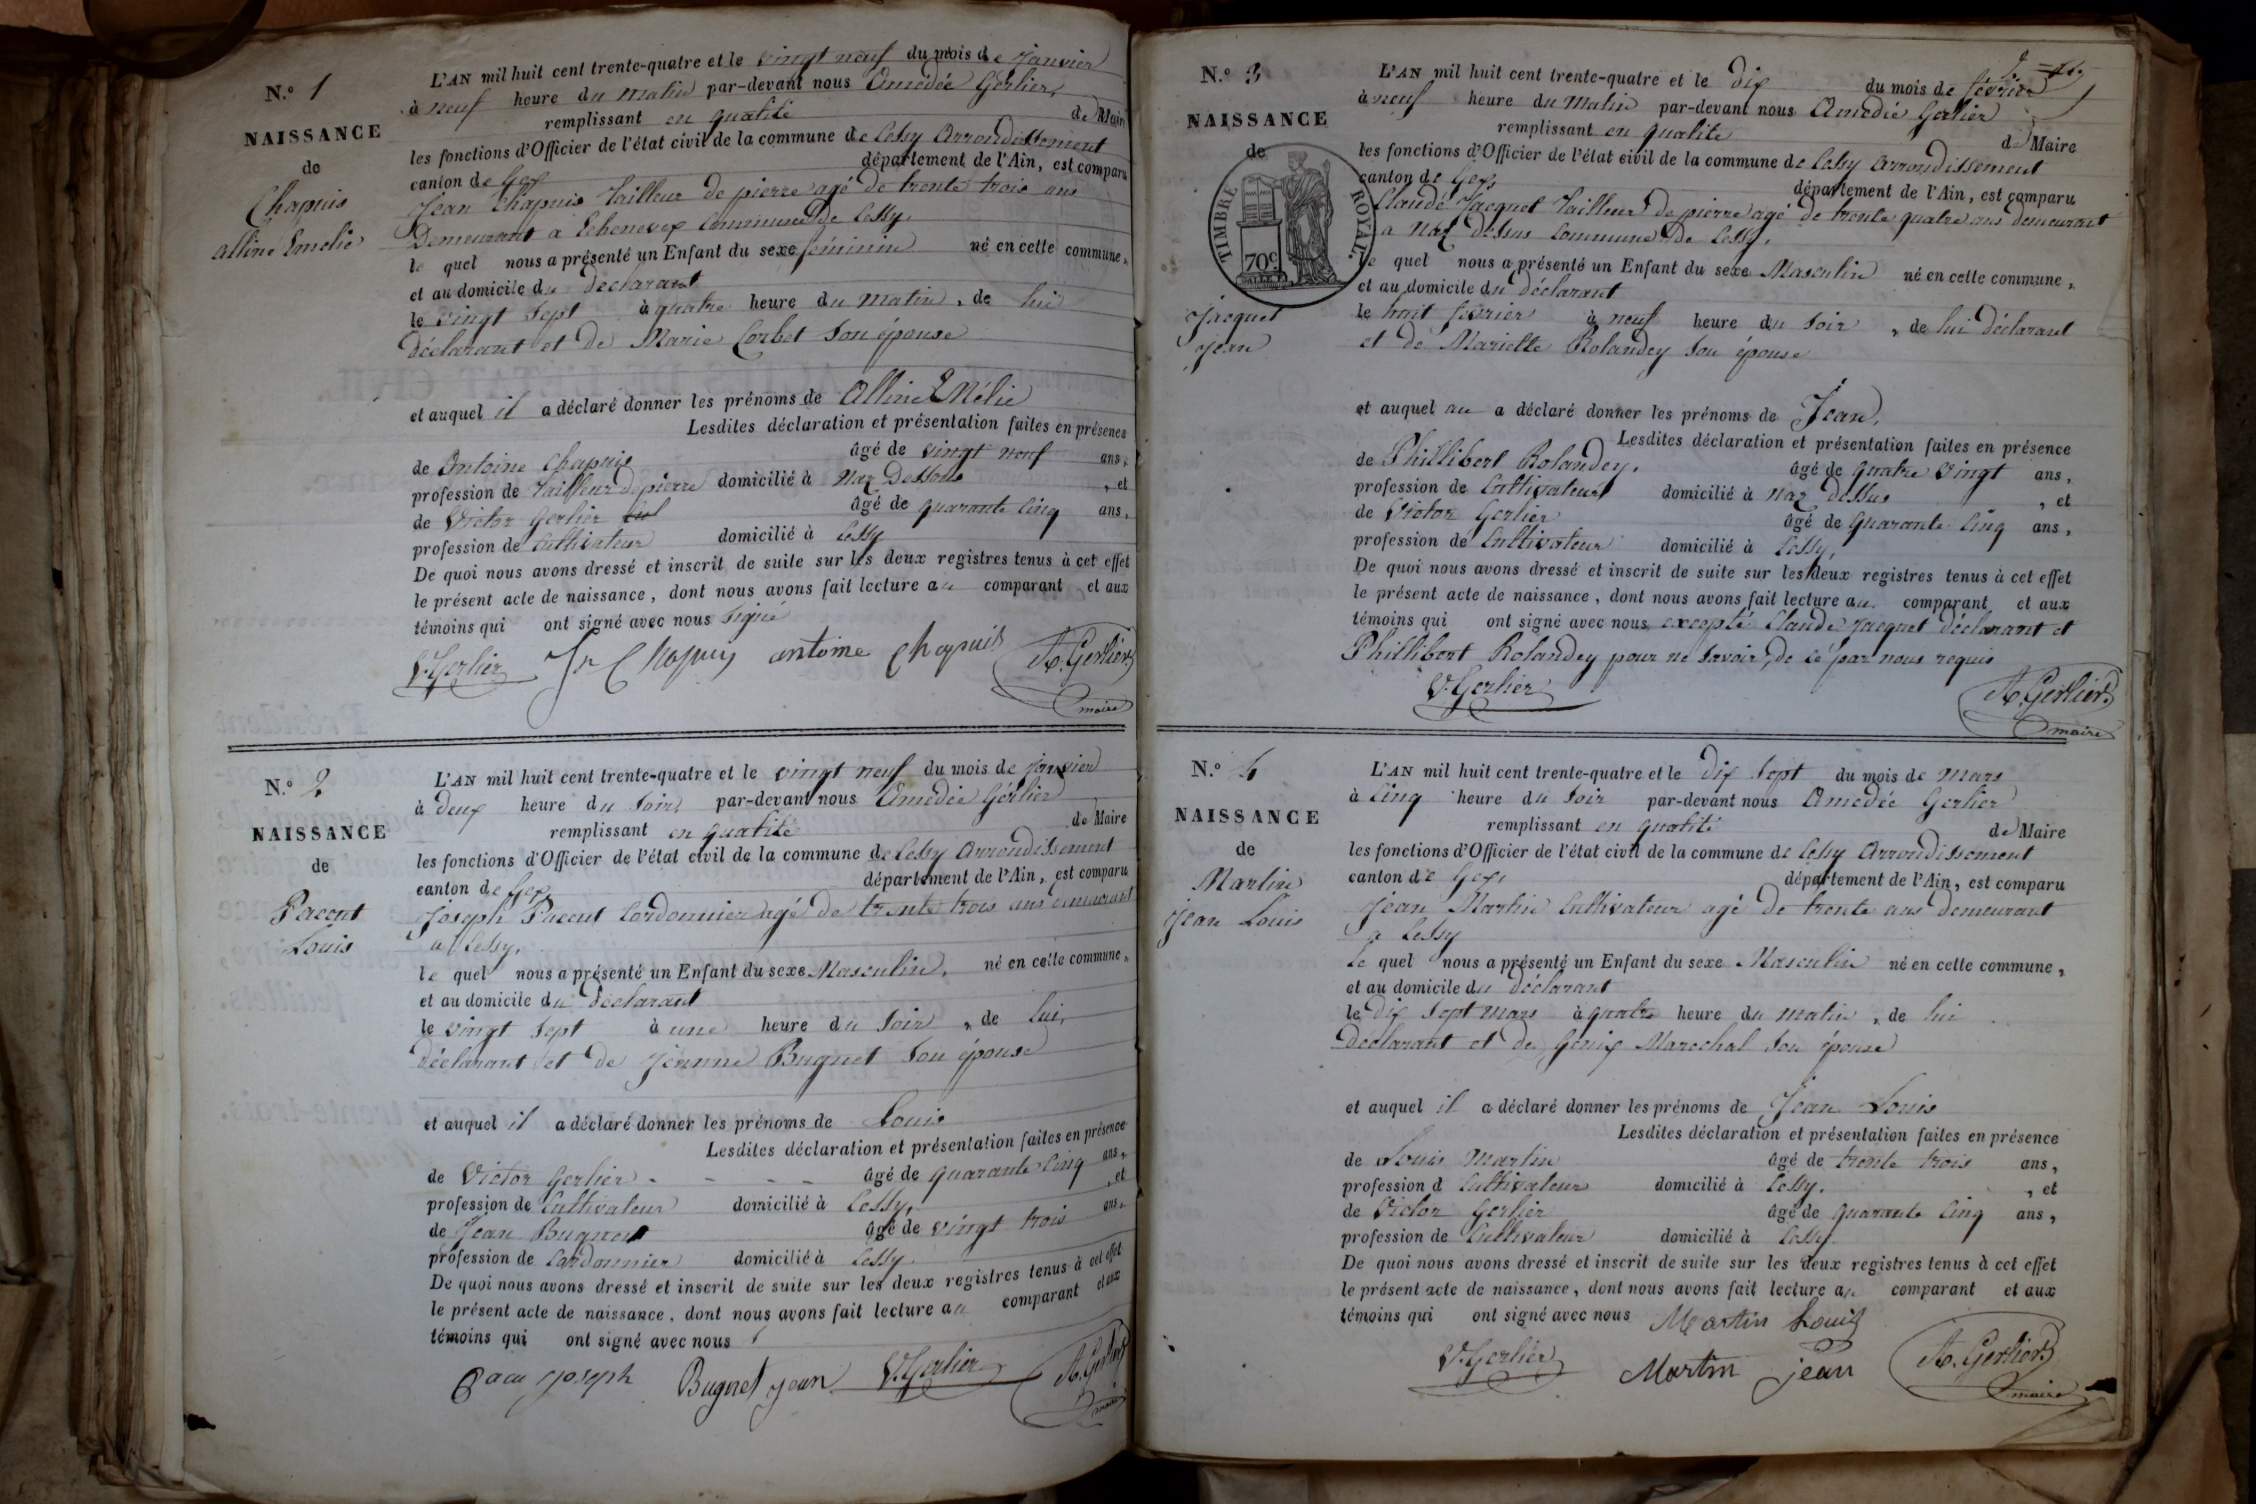 N.º 1
NAISSANCE
de
Chapuis
alline Emelie
L'AN mil huit cent trente-quatre et le vingt neuf du mois de Janvier
à neuf heure du matin par-devant nous Amédée Gerlier,
remplissant en qualité de Maire
les fonctions d'Officier de l'état civil de la commune de Cessy Arrondissement
canton de Gex département de l'Ain, est comparu
Jean Chapuis tailleur de pierre agé de trente trois ans
Demeurant a Echenevex Commune de Cessy.
le quel nous a présenté un Enfant du sexe féminin né en cette commune,
et au domicile du déclarant
le vingt sept à quatre heure du matin, de lui
déclarant et de Marie Corbet son épouse
et auquel il a déclaré donner les prénoms de Alline EMélie
Lesdites déclaration et présentation faites en présence
de Antoine Chapuis âgé de vingt neuf ans,
profession de tailleur d pierre domicilié à Naz Dessous, et
de Victor Gerlier âgé de quarante cinq ans,
profession de cultivateur domicilié à Cessy
De quoi nous avons dressé et inscrit de suite sur les deux registres tenus à cet effet
le présent acte de naissance, dont nous avons fait lecture au comparant et aux
témoins qui ont signé avec nous signé
V. Gerlier Jn Chapuis antoine chapuis A. Gerlier
maire
N.º 2
NAISSANCE
de
Pacout
Louis
L'AN mil huit cent trente-quatre et le vingt neuf du mois de janvier
à deux heure du soir, par-devant nous Amédée Gérlier
remplissant en qualité de Maire
les fonctions d'Officier de l'état civil de la commune de Cessy Arrondissement
canton de Gex, département de l'Ain, est comparu
Joseph Pacout Cordonnier agé de trente trois ans demeurant
a Cessy.
le quel nous a présenté un Enfant du sexe Masculin, né en cette commune,
et au domicile du déclarant
le vingt sept à une heure du soir, de lui,
déclarant et de Jeanne Bugnet son épouse
et auquel il a déclaré donner les prénoms de Louis
Lesdites déclaration et présentation faites en présence
de Victor Gerlier - - - - âgé de quarante cinq ans,
profession de Cultivateur domicilié à Cessy, , et
de Jean Bugnet âgé de vingt trois ans,
profession de Cordonnier domicilié à Cessy
De quoi nous avons dressé et inscrit de suite sur les deux registres tenus à cet effet
le présent acte de naissance, dont nous avons fait lecture au comparant et aux
témoins qui ont signé avec nous
joseph Bugnet jean V. Gerlier A. Gerlier
maire
N.º 3
NAISSANCE
de
TIMBRE ROYAL.
70c
Jacquet
Jean
L'AN mil huit cent trente-quatre et le dix du mois de février
à neuf heure du Matin par-devant nous Amedée Gerlier
remplissant en qualité de Maire
les fonctions d'Officier de l'état civil de la commune de Cessy Arrondissement
canton de Gex, département de l'Ain, est comparu
Claude Jacquet tailleur de pierre agé de trente quatre ans demeurant
a Naz dessus Commune de Cessy.
le quel nous a présenté un Enfant du sexe Masculin né en cette commune,
et au domicile du déclarant
le huit février à neuf heure du soir, de lui déclarant
et de Mariette Rolandey son épouse
et auquel au a déclaré donner les prénoms de Jean,
Lesdites déclaration et présentation faites en présence
de Phillibert Rolandey. âgé de quatre vingt ans,
profession de Cultivateur domicilié à Naz dessus, et
de Victor Gerlier âgé de quarante cinq ans,
profession de Cultivateur domicilié à Cessy,
De quoi nous avons dressé et inscrit de suite sur les deux registres tenus à cet effet
le présent acte de naissance, dont nous avons fait lecture au comparant et aux
témoins qui ont signé avec nous excepté Claude Jacquet déclarant et
Phillibert Rolandey pour ne savoir, de ce par nous requis
V. Gerlier A. Gerlier
maire
N.º 4
NAISSANCE
de
Martin
Jean Louis
L'AN mil huit cent trente-quatre et le dix sept du mois de mars
à Cinq heure du soir par-devant nous Amedée Gerlier
remplissant en qualité de Maire
les fonctions d'Officier de l'état civil de la commune de Cessy Arrondissement
canton de Gex, département de l'Ain, est comparu
Jean Martin Cultivateur agé de trente ans demeurant
a Cessy
le quel nous a présenté un Enfant du sexe Masculin né en cette commune,
et au domicile du déclarant
le dix sept mars à quatre heure du matin, de lui
déclarant et de Génix Marechal son épouse
et auquel il a déclaré donner les prénoms de Jean Louis
Lesdites déclaration et présentation faites en présence
de Louis Martin âgé de trente trois ans,
profession d Cultivateur domicilié à Cessy. , et
de Victor Gerlier âgé de quarante cinq ans,
profession de Cultivateur domicilié à Cessy
De quoi nous avons dressé et inscrit de suite sur les deux registres tenus à cet effet
le présent acte de naissance, dont nous avons fait lecture au comparant et aux
témoins qui ont signé avec nous Martin Louis
V. Gerlier Martin jean A. Gerlier
maire